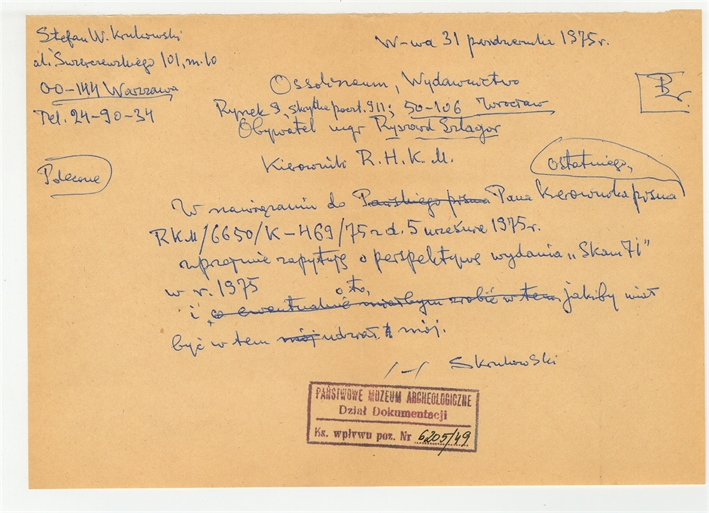 Stefan W. Krukowski
W-wa 31 października 1975 r.
al. Świerczewskiego 101, m. 10
00-144 Warszawa
Tel. 24-90-34
Ossolineum, Wydawnictwo
Rynek 9, skrytka poczt. 911; 50-106 Wrocław
Obywatel mgr Ryszard Szlagor
Kierownik R.H.K.M.
Polecone
ostatniego,
W nawiązaniu do Pańskiego pisma Pana Kierownika pisma
RKM/6650/K-469/75 z d. 5 wrześnie 1975 r.
uprzejmie zapytuję o perspektywę wydania „Skam 71"
w r. 1975
o to,
i co ewentualnie miałbym zrobić w tem jakiby miał
być w tem mój udział mój.
/-/ SKrukowski
PAŃSTWOWE MUZEUM ARCHEOLOGICZNE
Dział Dokumentacji
Ks. wpływu poz. Nr 6205/49